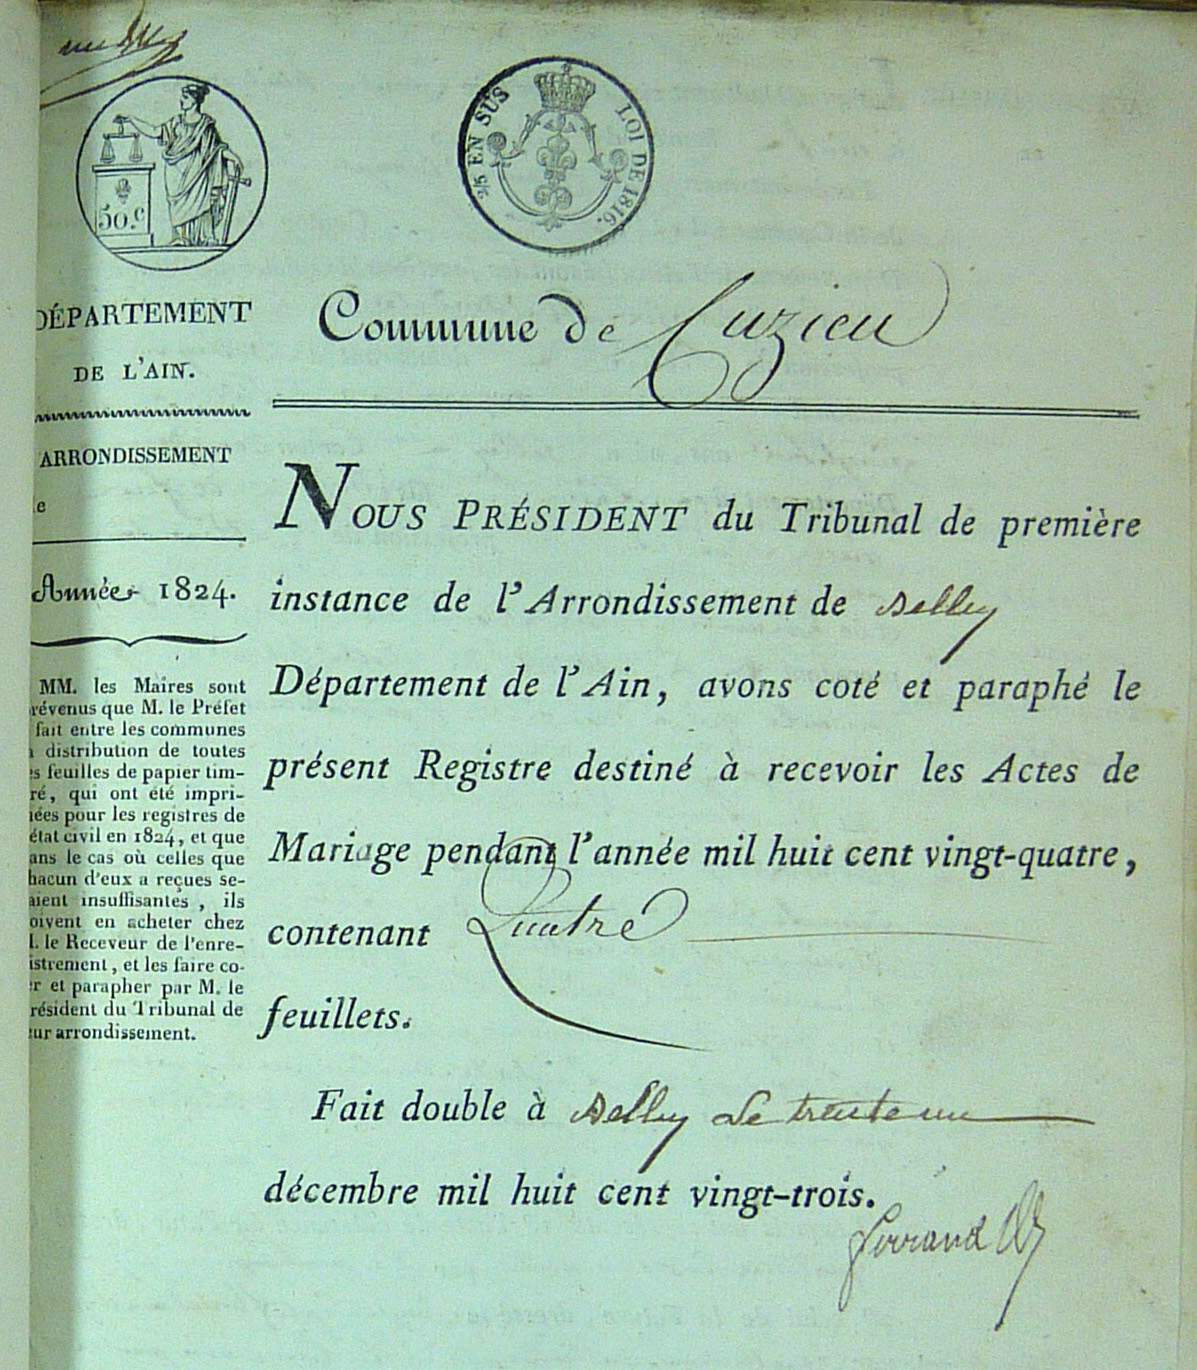 50.c
3/5 EN SUS
LOI DE 1816.
DÉPARTEMENT
DE L'AIN.
ARRONDISSEMENT
Année 1824.
MM. les Maires sont
révenus que M. le Préfet
fait entre les communes
distribution de toutes
s feuilles de papier tim-
ré, qui ont été impri-
ées pour les registres de
état civil en 1824, et que
ans le cas où celles que
hacun d'eux a reçues se-
aient insuffisantes, ils
oivent en acheter chez
. le Receveur de l'enre-
istrement, et les faire co-
r et parapher par M. le
résident du Tribunal de
ur arrondissement.
Commune de Cuzieu
NOUS PRÉSIDENT du Tribunal de première
instance de l'Arrondissement de Belley
Département de l'Ain, avons coté et paraphé le
présent Registre destiné à recevoir les Actes de
Mariage pendant l'année mil huit cent vingt-quatre,
contenant Quatre
feuillets.
Fait double à Belley Le trente un
décembre mil huit cent vingt-trois.